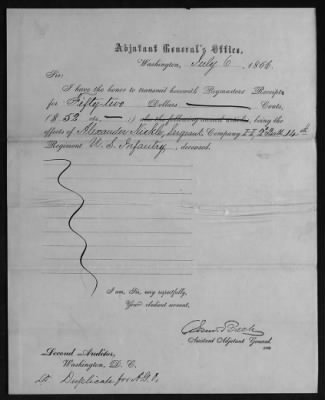 Adjutant General's Office,
Washington, July 6, 1866.
Sir:
I have the honor to transmit herewith Paymasters Receipts
for Fifty-two Dollars Cents,
($ 52 cts. —) being the
effects of Alexander Nickle, Sergeant, Company 2 Batt. 14th
Regiment U. S. Infantry, deceased.
I am, Sir, very respectfully,
Your obedient servant,
Assistant Adjutant General.
Second Auditor,
Washington, D. C.
Duplicate for A. G. O.